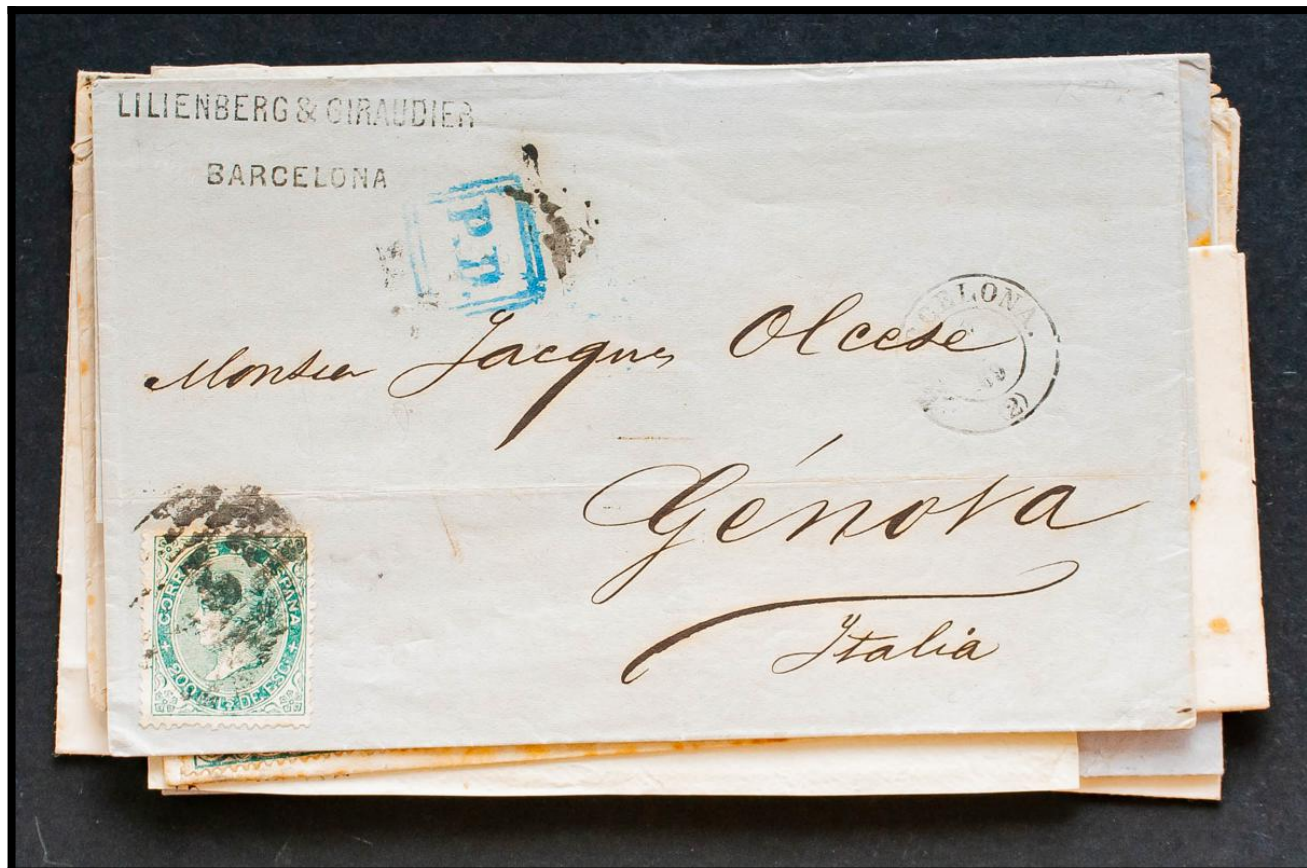 LILIENBERG & GIRAUDIER
BARCELONA
P.D.
Jacques Olcese
CELONA.
(2)
Génova
Italia
CORREOS ESPAÑA
200 DE ESC